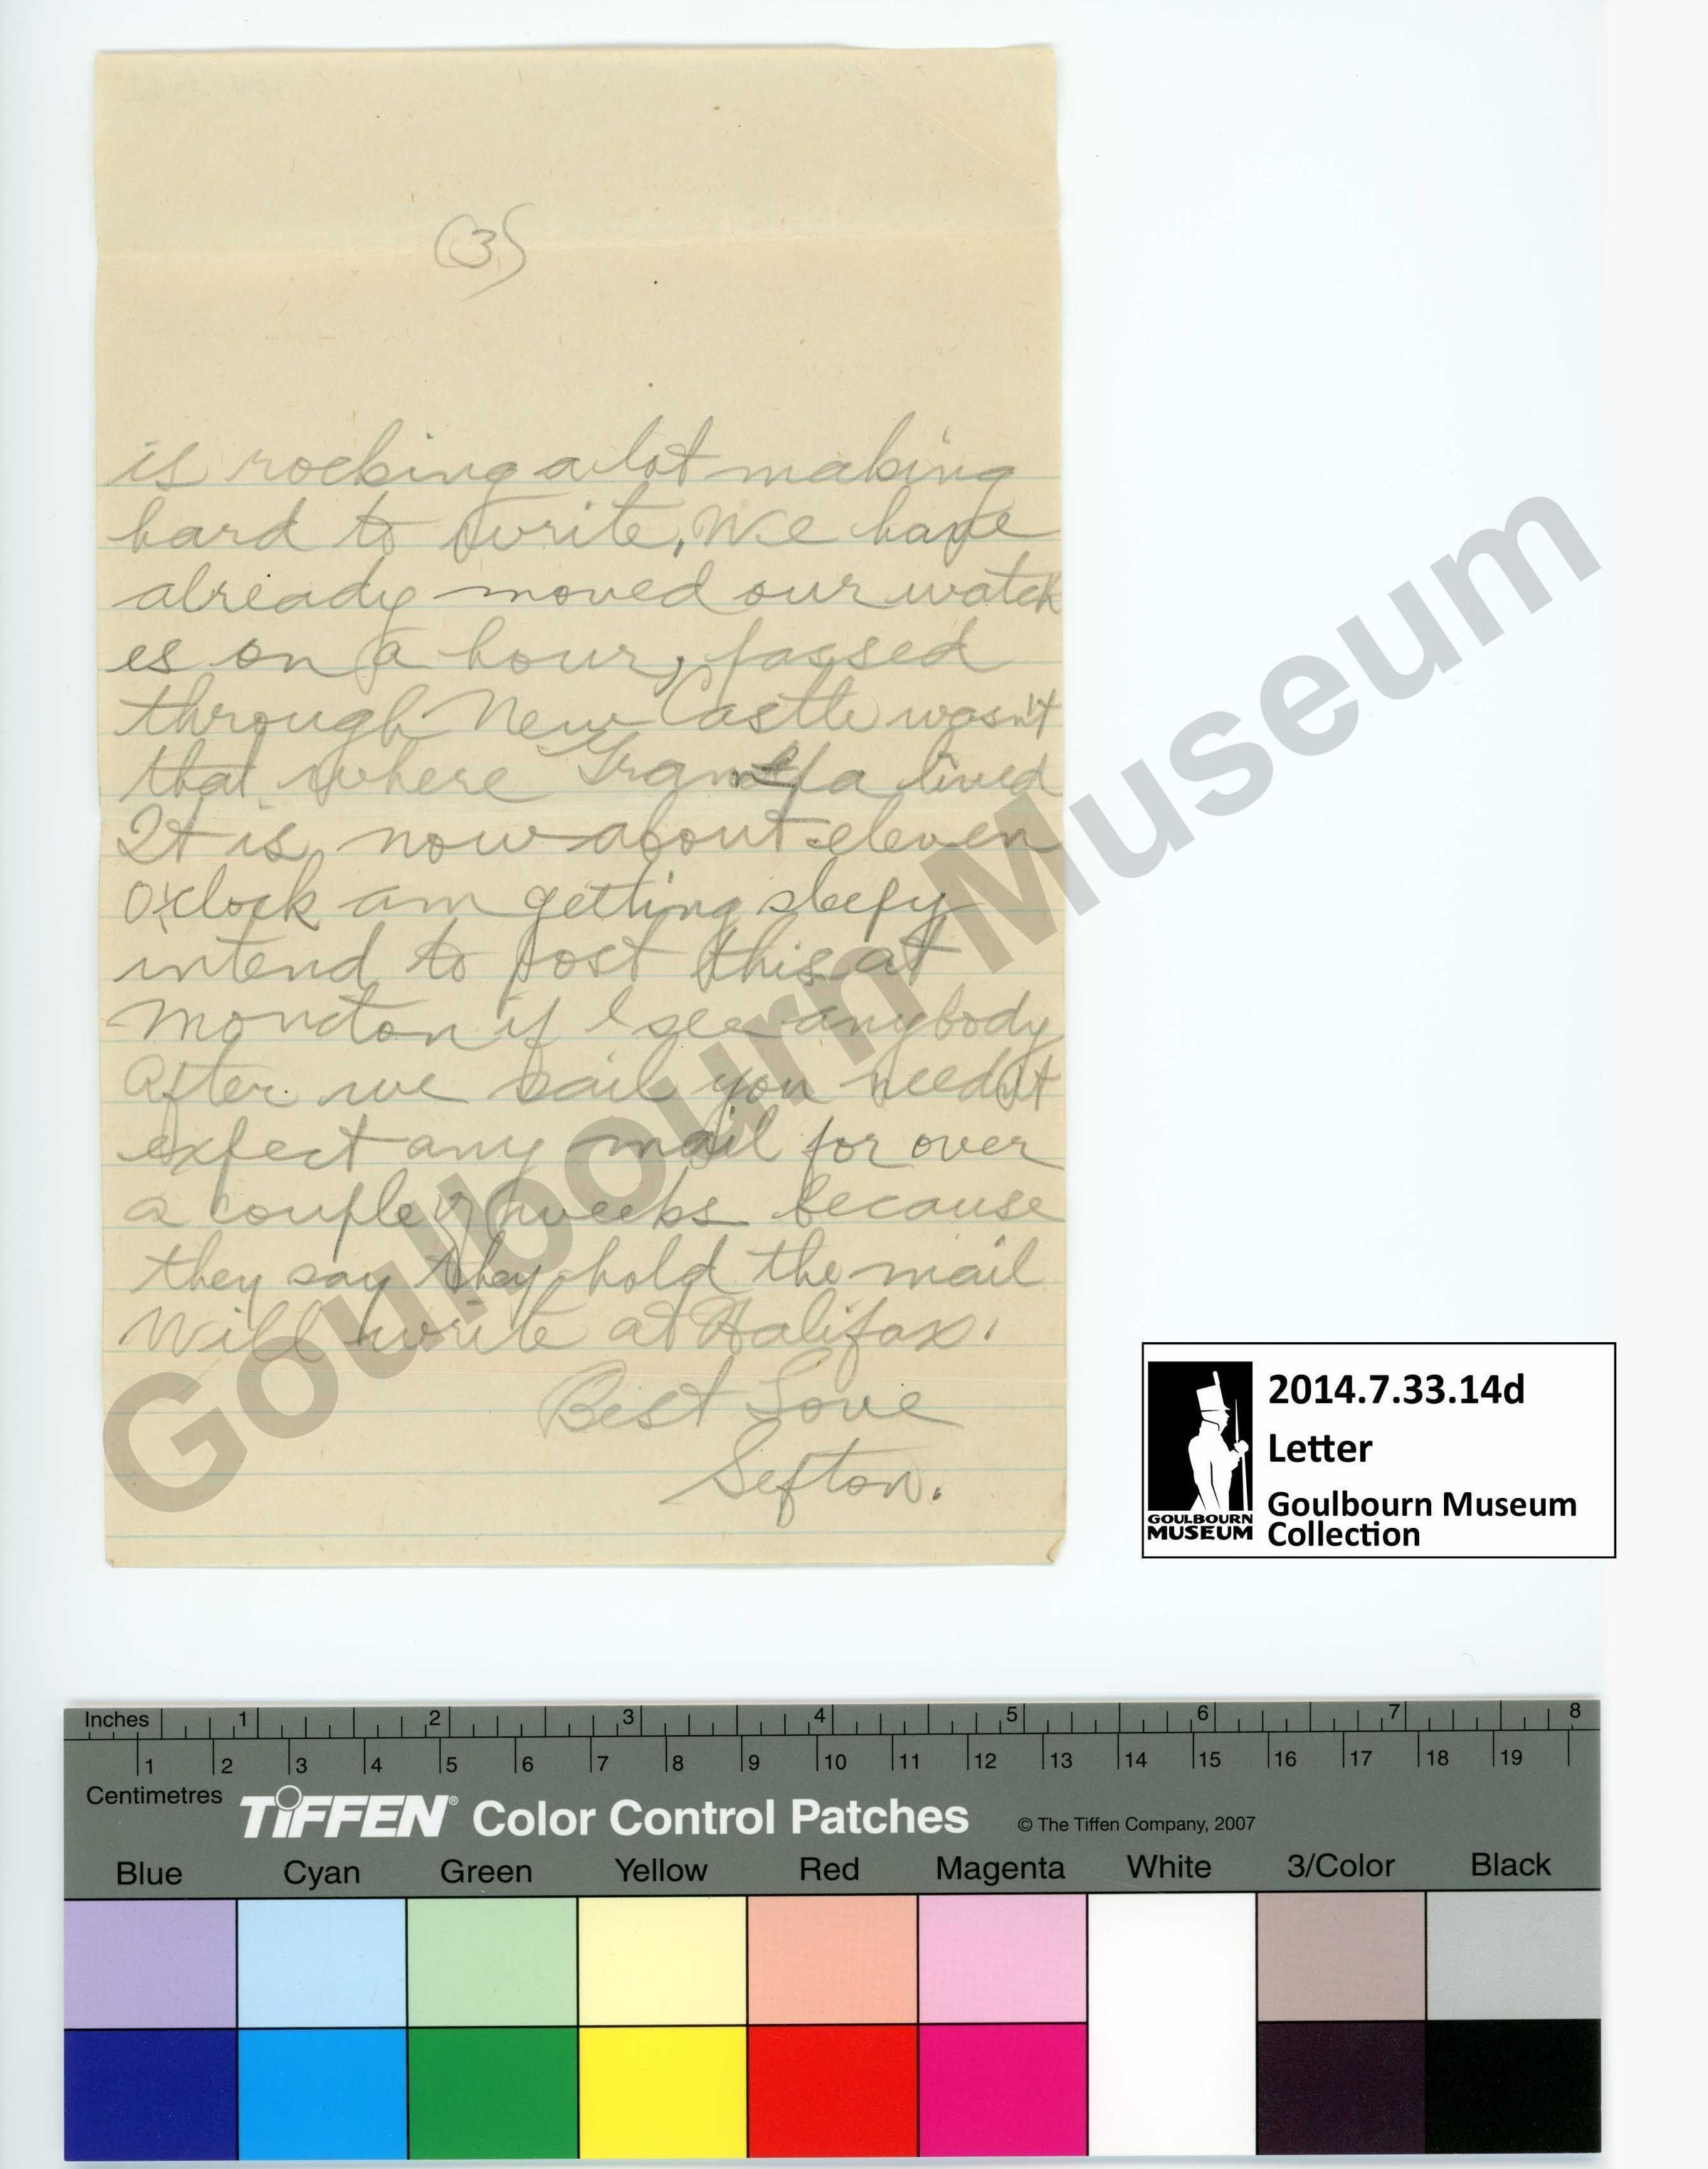 (3)
is rocking a lot making
hard to write, We have
already moved our watch
es on a hour, passed
through New Castle wasn't
that where Grandpa lived
It is now about eleven
O'clock am getting sleepy
intend to post this at
Moncton if I see anybody
After we sail you needn't
expect any mail for over
a couple of weeks because
they say they hold the mail
Will write at Halifax.
Best Love
Sefton.
Goulbourn Museum
2014.7.33.14d
Letter
Goulbourn Museum
Collection
GOULBOURN
MUSEUM
Inches 1 2 3 4 5 6 7 8
1 2 3 4 5 6 7 8 9 10 11 12 13 14 15 16 17 18 19
Centimetres
TIFFEN® Color Control Patches © The Tiffen Company, 2007
Blue Cyan Green Yellow Red Magenta White 3/Color Black